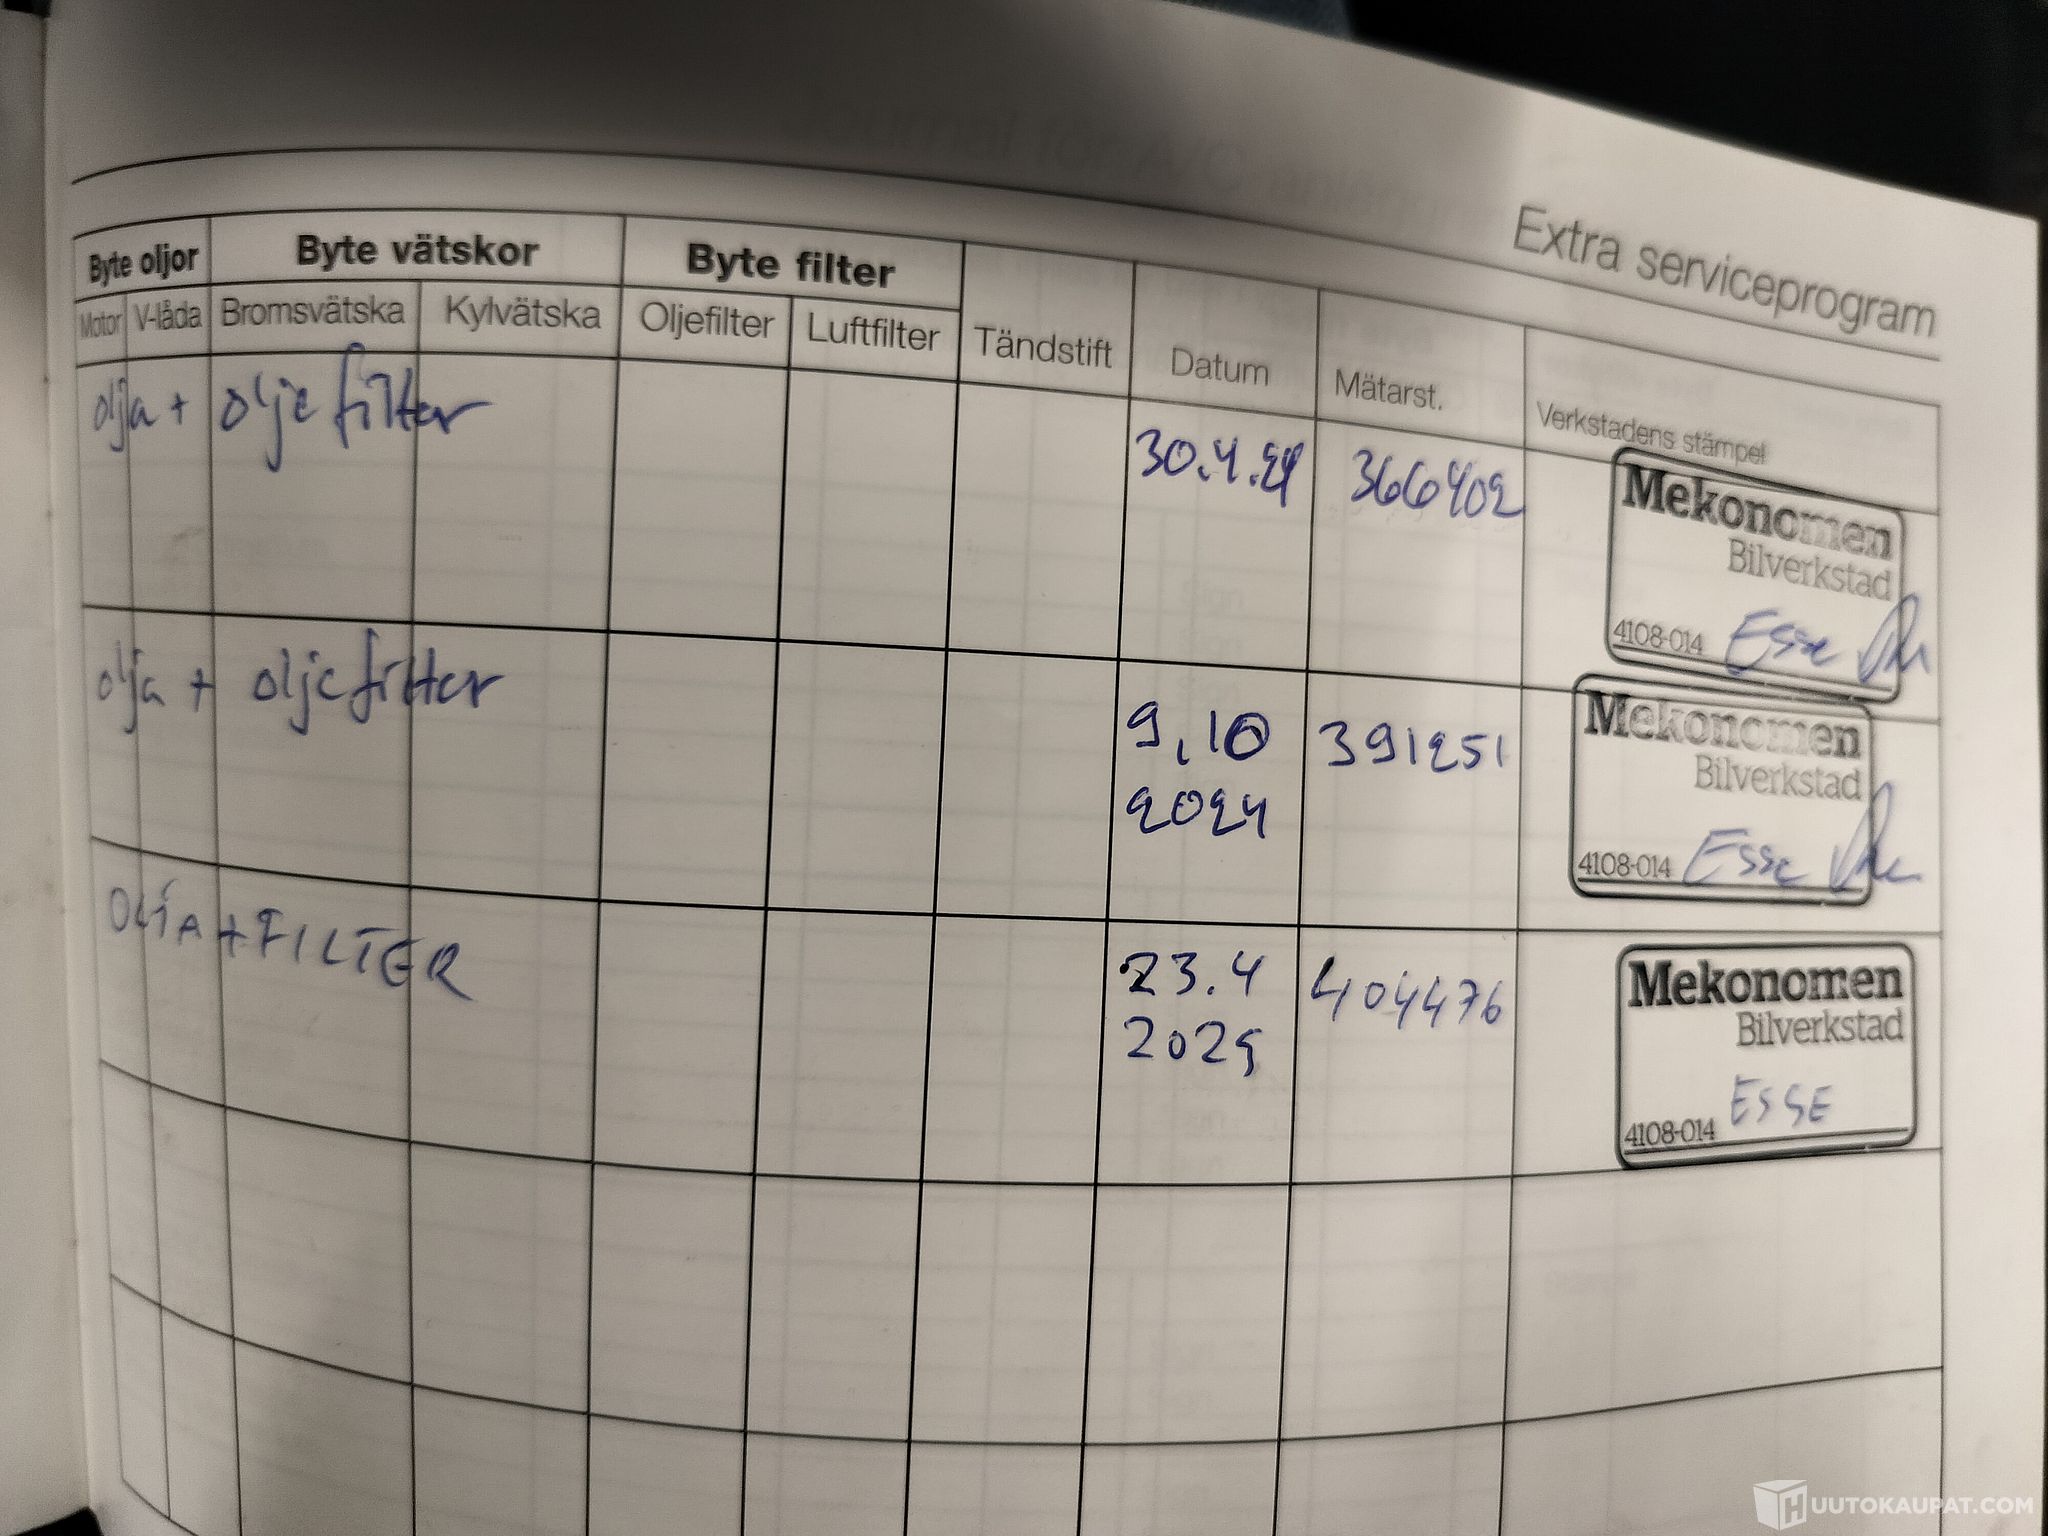 Extra serviceprogram
Byte oljor Byte vätskor Byte filter
Motor V-låda Bromsvätska Kylvätska Oljefilter Luftfilter Tändstift Datum Mätarst. Verkstadens stämpel
olja + oljefilter 30.4.24 366402
Mekonomen
Bilverkstad
4108-014 Esse
olja + oljefilter 9.10 391251
2024
Mekonomen
Bilverkstad
4108-014 Esse
OLJA + FILTER 23.4 404476
2025
Mekonomen
Bilverkstad
ESSE
4108-014
HUUTOKAUPAT.COM